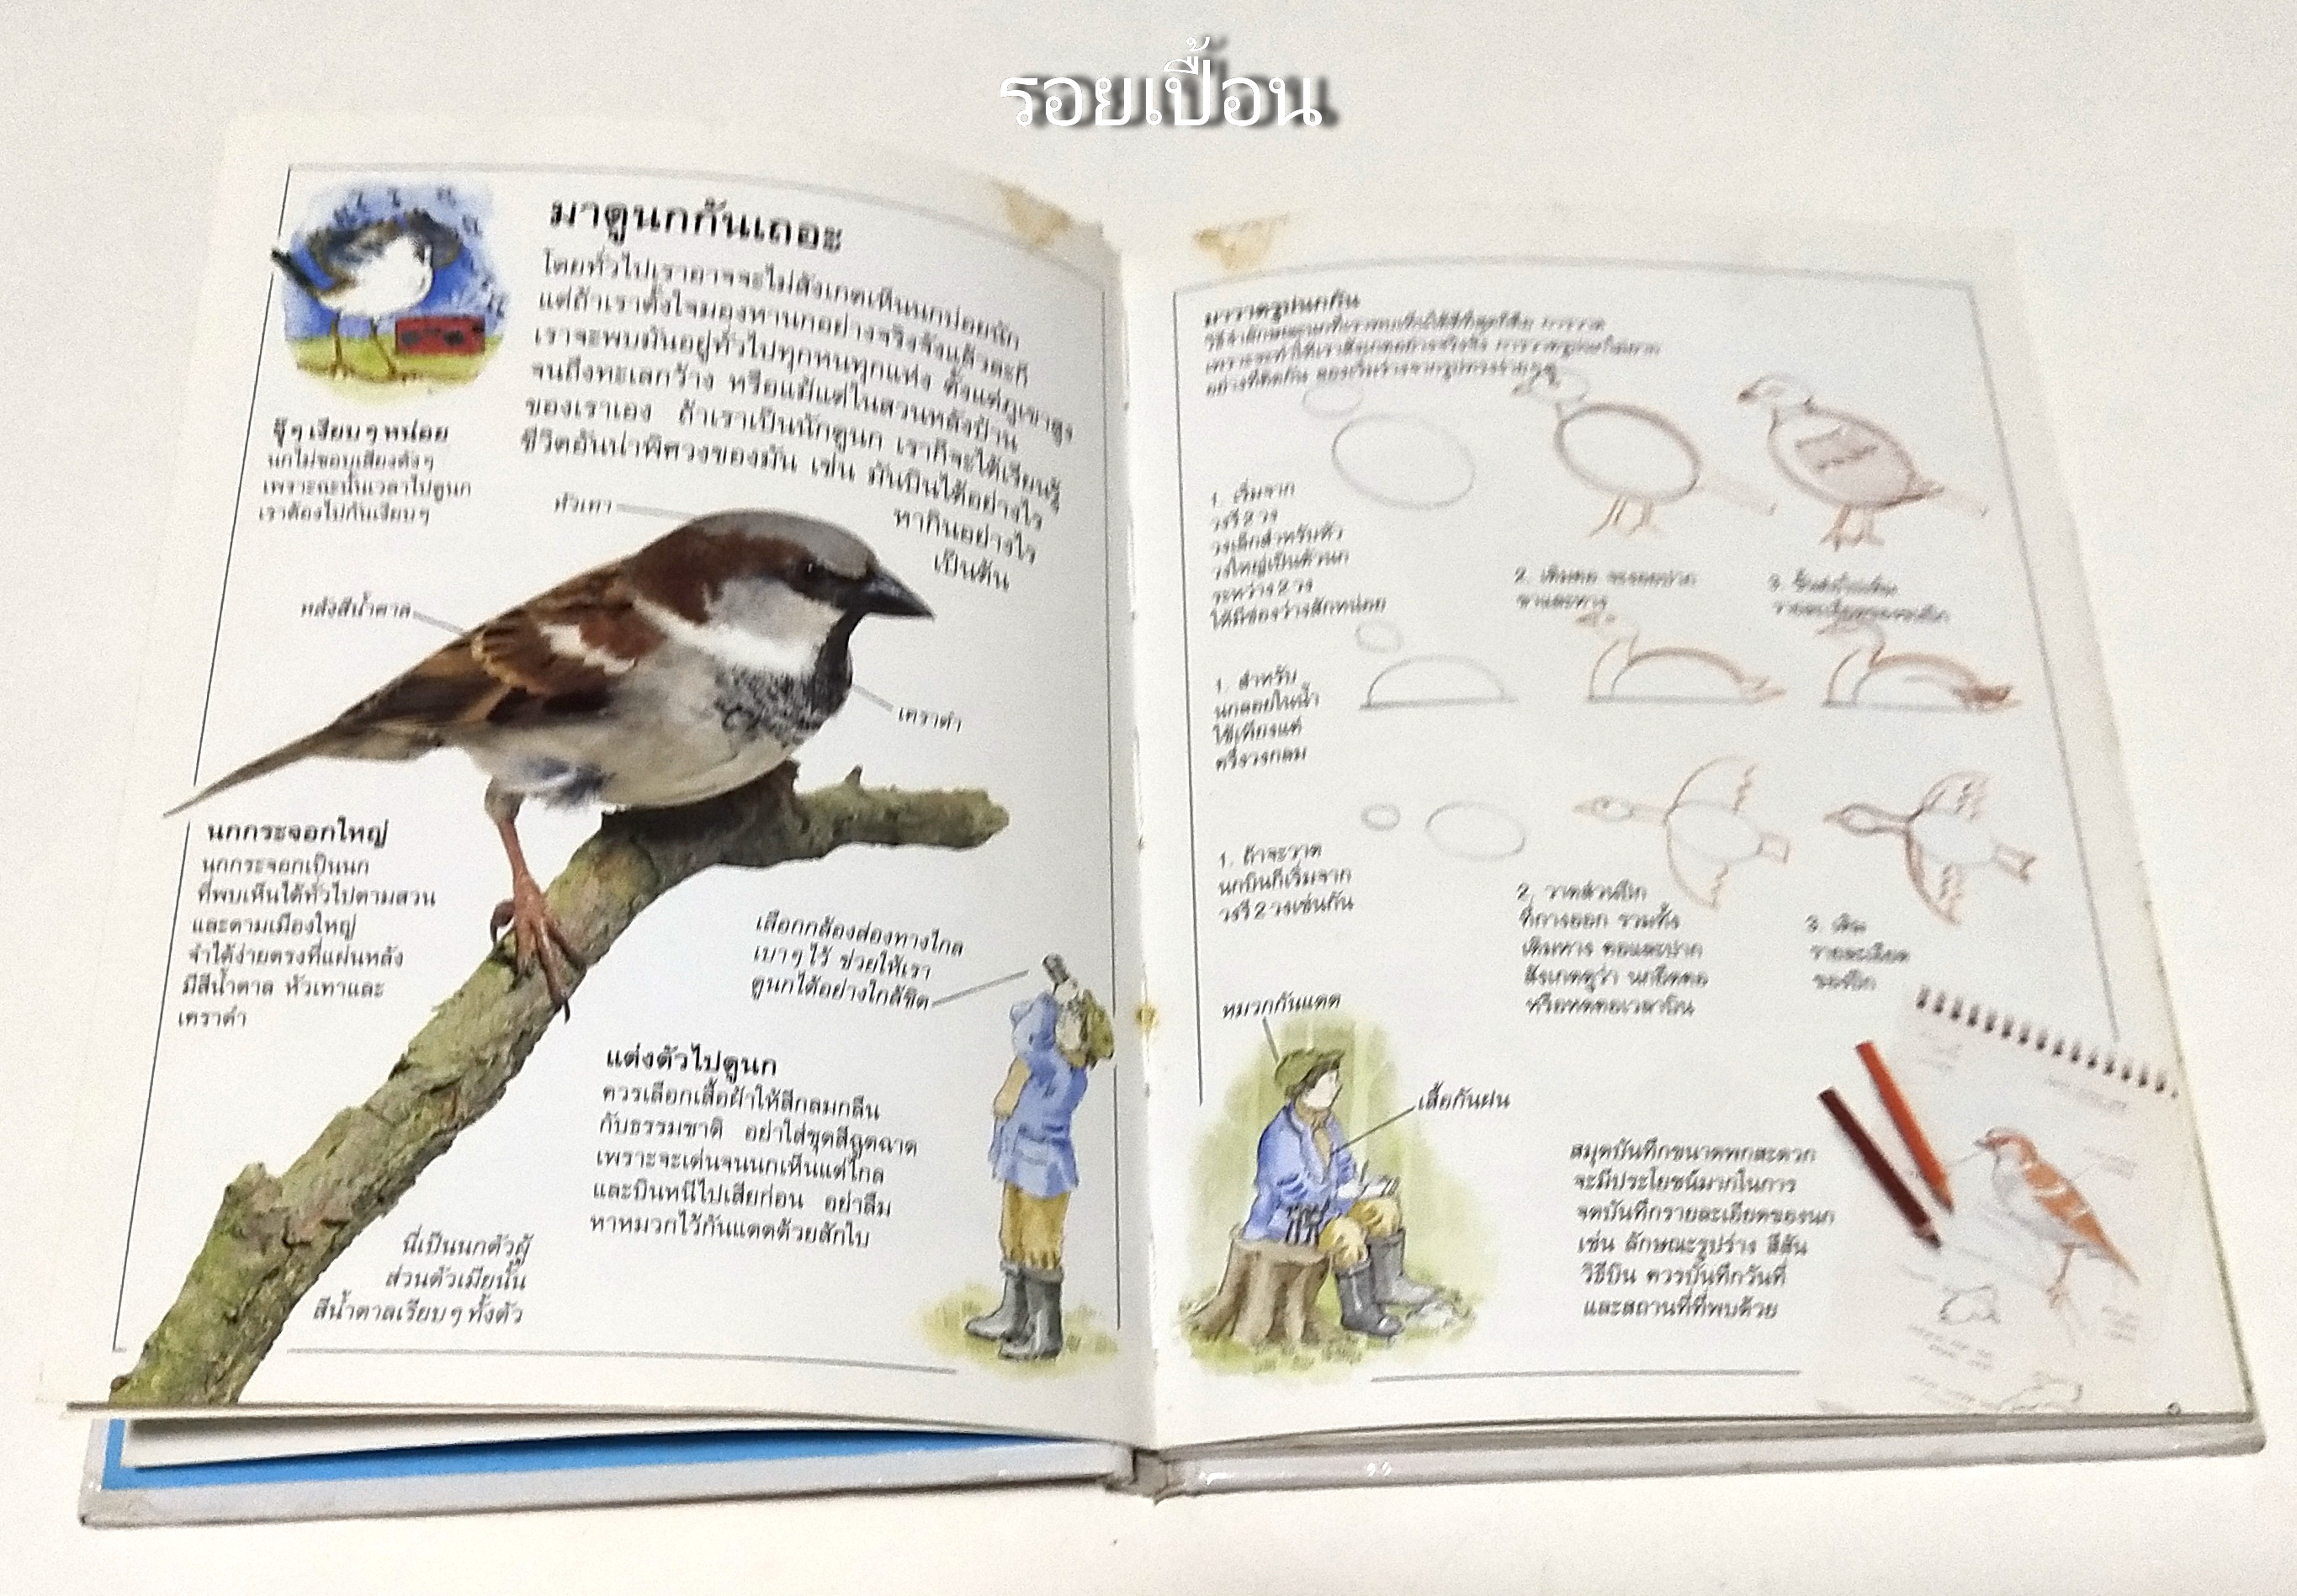 รอยเปื้อน
มาดูนกกันเถอะ
โดยทั่วไปเราอาจจะไม่สังเกตเห็นนกบ่อยนัก
แต่ถ้าเราตั้งใจมองหานกอย่างจริงจังแล้วละก็
เราจะพบมันอยู่ทั่วไปทุกหนทุกแห่ง ตั้งแต่ภูเขาสูง
จนถึงทะเลกว้าง หรือแม้แต่ในสวนหลังบ้าน
ของเราเอง ถ้าเราเป็นนักดูนก เราก็จะได้เรียนรู้
ชีวิตอันน่าพิศวงของมัน เช่น มันบินได้อย่างไร
หากินอย่างไร
เป็นต้น
จุ๊ๆ เงียบๆ หน่อย
นกไม่ชอบเสียงดังๆ
เพราะฉะนั้นเวลาไปดูนก
เราต้องไปกันเงียบๆ
หัวเทา
หลังสีน้ำตาล
เคราดำ
นกกระจอกใหญ่
นกกระจอกเป็นนก
ที่พบเห็นได้ทั่วไปตามสวน
และตามเมืองใหญ่
จำได้ง่ายตรงที่แผ่นหลัง
มีสีน้ำตาล หัวเทาและ
เคราดำ
เลือกกล้องส่องทางไกล
เบาๆ ไว้ ช่วยให้เรา
ดูนกได้อย่างใกล้ชิด
แต่งตัวไปดูนก
ควรเลือกเสื้อผ้าให้สีกลมกลืน
กับธรรมชาติ อย่าใส่ชุดสีฉูดฉาด
เพราะจะเด่นจนนกเห็นแต่ไกล
และบินหนีไปเสียก่อน อย่าลืม
หาหมวกไว้กันแดดด้วยสักใบ
นี่เป็นนกตัวผู้
ส่วนตัวเมียนั้น
สีน้ำตาลเรียบๆ ทั้งตัว
มาวาดรูปนกกัน
1. เริ่มจาก
วงรี 2 วง
วงเล็กสำหรับหัว
วงใหญ่เป็นตัวนก
ระหว่าง 2 วง
ให้มีช่องว่างสักหน่อย
2. เติมคอ จะงอยปาก
ขาและหาง
1. สำหรับ
นกลอยในน้ำ
ใช้เพียงแค่
ครึ่งวงกลม
1. ถ้าจะวาด
นกบินก็เริ่มจาก
วงรี 2 วงเช่นกัน
2. วาดส่วนปีก
ที่กางออก รวมทั้ง
เติมหาง คอและปาก
สังเกตดูว่า นกยืดคอ
หรือหดคอเวลาบิน
3. เติม
รายละเอียด
ของปีก
หมวกกันแดด
เสื้อกันฝน
สมุดบันทึกขนาดพกสะดวก
จะมีประโยชน์มากในการ
จดบันทึกรายละเอียดของนก
เช่น ลักษณะรูปร่าง สีสัน
วิธีบิน ควรบันทึกวันที่
และสถานที่ที่พบด้วย